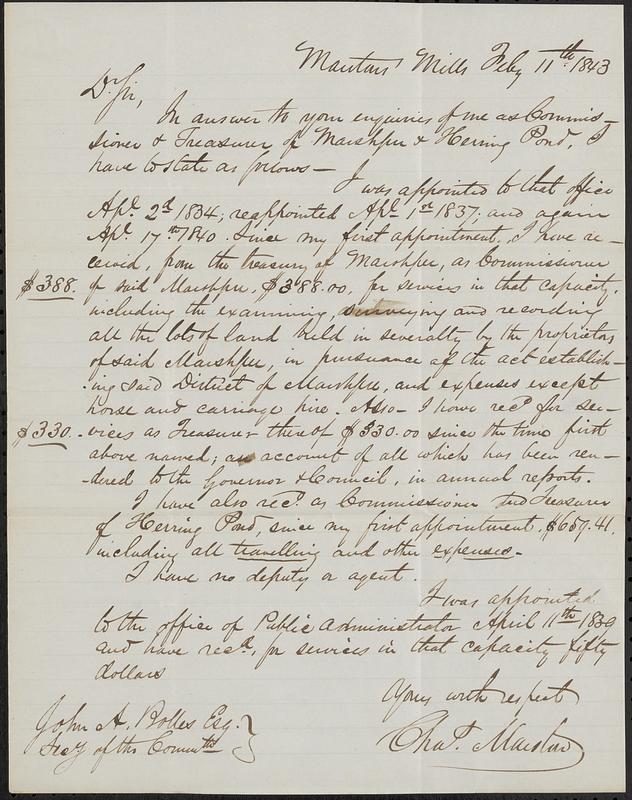 Marstons Mills Feby 11th 1843
Dr Sir,
In answer to your enquiries of me as Commis-
sioner & Treasurer of Marshpee & Herring Pond, I
have to state as follows—
I was appointed to that office
Apl. 2d 1834; reappointed Apl. 1st 1837; and again
Apl. 17th 1840. Since my first appointment, I have re-
ceived, from the treasury of Marshpee, as Commissioner
$388. of said Marshpee, $388.00, for services in that capacity,
including the examining, surveying and recording
all the lots of land held in severalty by the proprietors
of said Marshpee, in pursuance of the act establish-
ing said District of Marshpee, and expenses except
horse and carriage hire. Also— I have recd. for ser-
$330. vices as Treasurer thereof $330.00 since the time first
above named; an account of all which has been ren-
dered to the Governor & Council, in annual reports.
I have also recd. as Commissioner and Treasurer
of Herring Pond, since my first appointment, $657.41,
including all travelling and other expenses.
I have no deputy or agent.
I was appointed
to the office of Public Administrator April 11th 1839
and have recd. for services in that capacity fifty
dollars
Yours with respect
Chas. Marston
John A. Bolles Esq.
Secy of the Committee